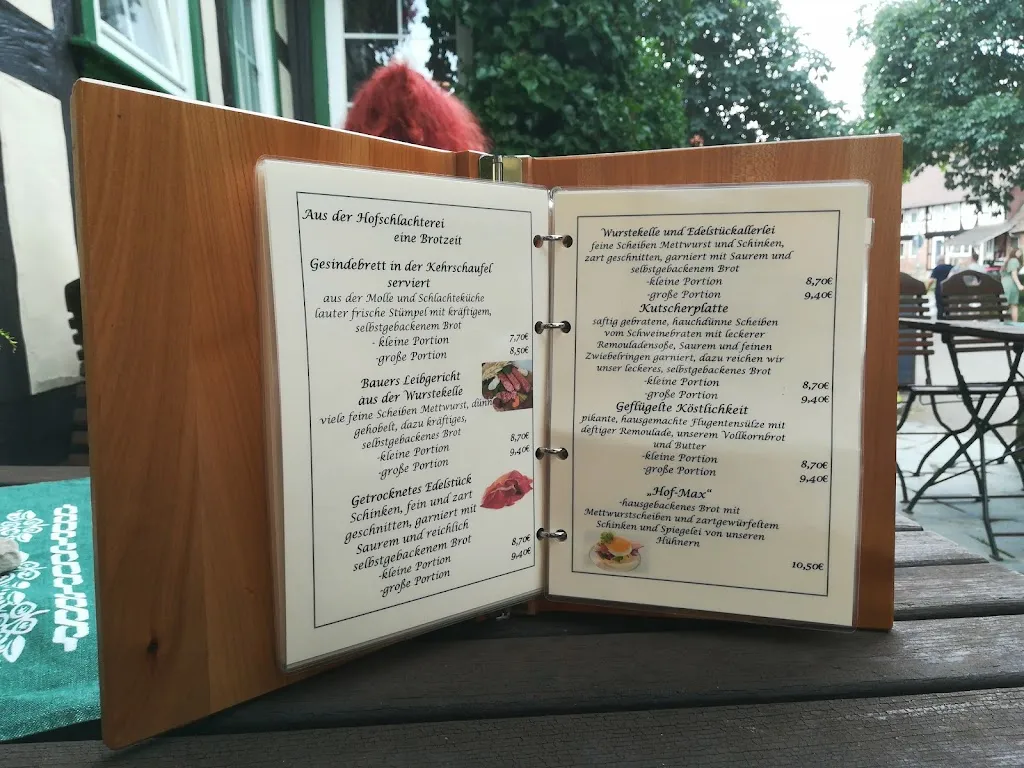 Aus der Hofschlachterei
eine Brotzeit
Gesindebrett in der Kehrschaufel
serviert
aus der Molle und Schlachteküche
lauter frische Stümpel mit kräftigem,
selbstgebackenem Brot
- kleine Portion 7,70€
-große Portion 8,50€
Bauers Leibgericht
aus der Wurstekelle
viele feine Scheiben Mettwurst, dünn
gehobelt, dazu kräftiges,
selbstgebackenes Brot
-kleine Portion 8,70€
-große Portion 9,40€
Getrocknetes Edelstück
Schinken, fein und zart
geschnitten, garniert mit
Saurem und reichlich
selbstgebackenem Brot
-kleine Portion 8,70€
-große Portion 9,40€
Wurstekelle und Edelstückallerlei
feine Scheiben Mettwurst und Schinken,
zart geschnitten, garniert mit Saurem und
selbstgebackenem Brot
-kleine Portion 8,70€
-große Portion 9,40€
Kutscherplatte
saftig gebratene, hauchdünne Scheiben
vom Schweinebraten mit leckerer
Remouladensoße, Saurem und feinen
Zwiebelringen garniert, dazu reichen wir
unser leckeres, selbstgebackenes Brot
-kleine Portion 8,70€
-große Portion 9,40€
Geflügelte Köstlichkeit
pikante, hausgemachte Flugentensülze mit
deftiger Remoulade, unserem Vollkornbrot
und Butter
-kleine Portion 8,70€
-große Portion 9,40€
„Hof-Max“
-hausgebackenes Brot mit
Mettwurstscheiben und zartgewürfeltem
Schinken und Spiegelei von unseren
Hühnern
10,50€